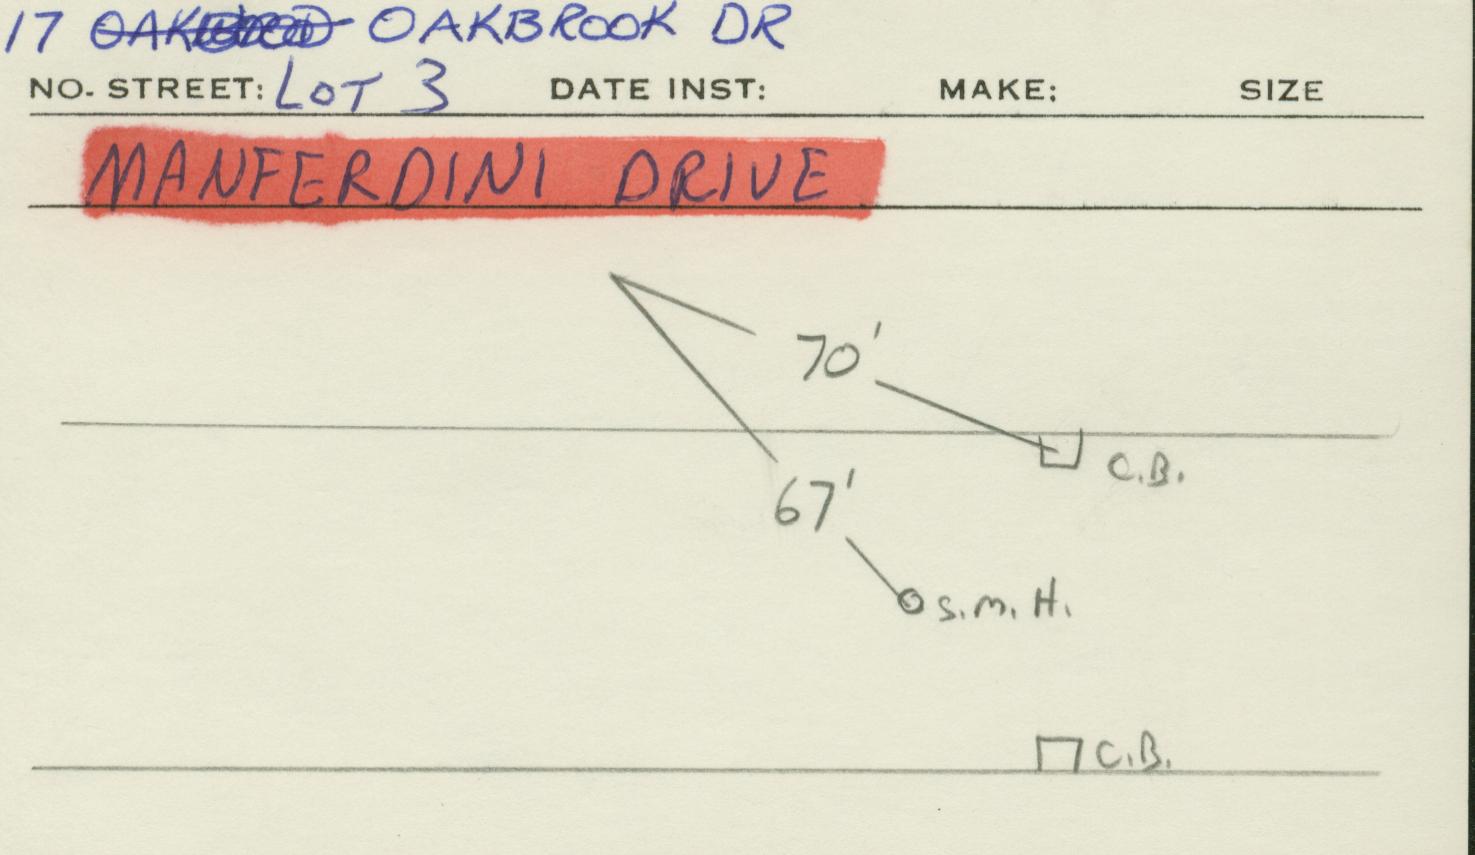 17 OAKBROOK DR
NO. STREET: LOT 3 DATE INST: MAKE: SIZE
MANFERDINI DRIVE
70'
C.B.
67'
S.M.H.
C.B.